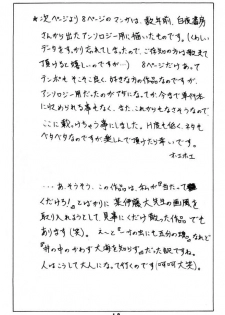 *次ページより8ページのマンガは、数年前、白夜書房
さんから出たアンソロジー用に描いたものです。(くわしい
データをすっかり忘れてしまったので、ご存知の方は教えて
頂けると嬉しいのですが…) 8ページだけあって
テンポもそこそこ良く、好きな方の作品なのですが、
アンソロジー用だったのが アダになってか、今まで単行本
に収められる事もなく、また、これからもなさそうなので、
ここに載っけちゃう事にしました。H度も低く、ネタも
ベタベタなのですが、楽しんで頂けたら幸いです。
…あ、そうそう、この作品は、私が「当たって
くだけろ!」とばかりに某伊藤大先生の画風を
取り入れようとして、見事にくだけ散った作品でも
あります(笑)。え〜と、「一寸の虫にも五分の魂」なれど
「井の中のかわず大海を知らず」だった訳ですね。
人はこうして大人になって行くのです(呵呵大笑)。